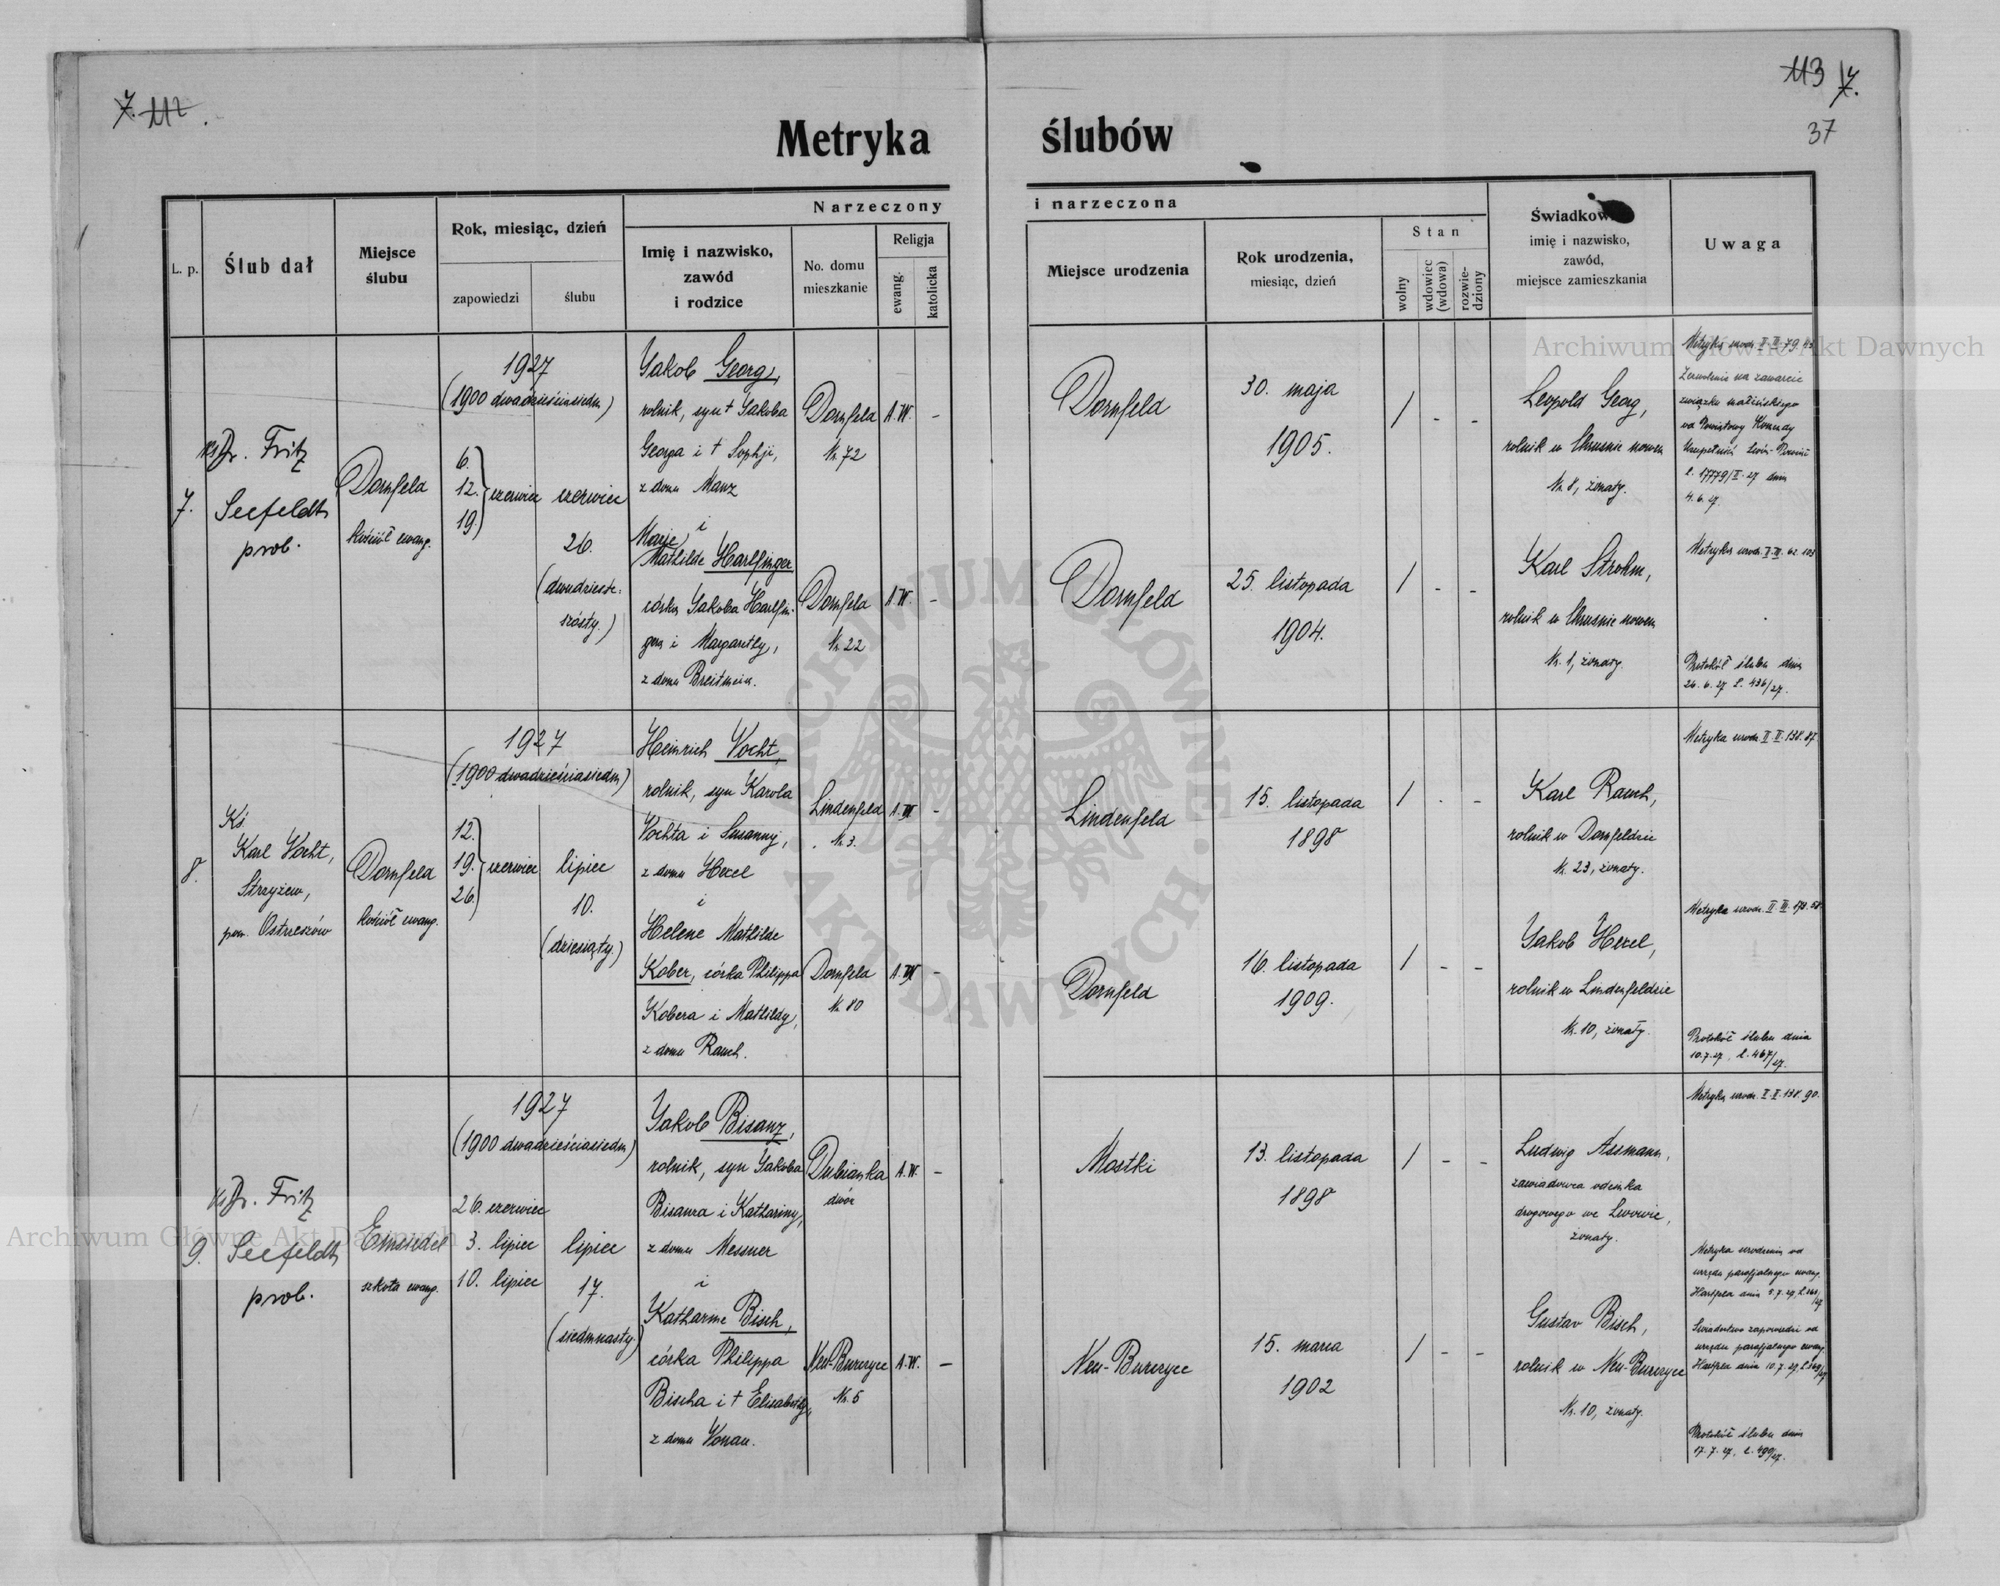 7. 112.
113 7.
37
Metryka ślubów
L. p.
Ślub dał
Miejsce
ślubu
Rok, miesiąc, dzień
zapowiedzi
ślubu
Narzeczony
Imię i nazwisko,
zawód
i rodzice
No. domu
mieszkanie
Religja
ewang.
katolicka
i narzeczona
Miejsce urodzenia
Rok urodzenia,
miesiąc, dzień
Stan
wolny
wdowiec
(wdowa)
rozwie-
dziony
Świadkow
imię i nazwisko,
zawód,
miejsce zamieszkania
Uwaga
7.
Ks. Dr. Fritz
Seefeldt
prob.
Dornfeld
kościół ewang.
1927
(1900 dwadzieściasiedm)
6.
12.
19.
czerwiec
czerwiec
26.
(dwudzieste-
szósty.)
Jakob Georg,
rolnik, syn † Jakoba
Georga i † Sophji,
z domu Manz
i
Marie
Mathilde Harlfinger
córka Jakoba Harlfin-
gera i Margarethy,
z domu Breitmeier.
Dornfeld
Nr. 72
A.W.
-
Dornfeld
Nr. 22
A.W.
-
Dornfeld
30. maja
1905.
/ - -
Dornfeld
25. listopada
1904.
/ - -
Leopold Georg,
rolnik w Chrusnie nowem
Nr. 8, żonaty.
Karl Strohm,
rolnik w Chrusnie nowem
Nr. 1, żonaty.
Metryka urodz. II. II. 79.
Zezwolenie na zawarcie
związku małżeńskiego
od Powiatowy Komendy
Uzupełnień Lwów-Powiat
l. 17779/II. 27 dnia
4. 6. 27.
Metryka urodz. I. III. 62. 103
Protokół ślubu dnia
26. 6. 27 l. 436/27.
8.
Ks.
Karl Vocht,
Strzyżew,
pow. Ostrzeszów
Dornfeld
kościół ewang.
1927
(1900 dwadzieściasiedm)
12.
19.
26.
czerwiec
lipiec
10.
(dziesiąty.)
Heinrich Vocht,
rolnik, syn Karola
Vochta i Susanny,
z domu Hexel
i
Helene Mathilde
Kober, córka Philippa
Kobera i Mathildy,
z domu Rauch.
Lindenfeld
Nr. 3.
A.W
-
Dornfeld
Nr. 80
A.W
-
Lindenfeld
15. listopada
1898
/ - -
Dornfeld
16. listopada
1909.
/ - -
Karl Rauch,
rolnik w Dornfeldzie
Nr. 23, żonaty.
Jakob Hexel,
rolnik w Lindenfeldzie
Nr. 10, żonaty.
Metryka urodz. II. II. 138. 87.
Metryka urodz. II. III. 173. 58.
Protokół ślubu dnia
10. 7. 27. l. 467/27.
9.
Ks. Dr. Fritz
Seefeldt
prob.
Einsiedel
szkoła ewang.
1927
(1900 dwadzieściasiedm)
26. czerwiec
3. lipiec
10. lipiec
lipiec
17.
(siedmnasty.)
Jakob Bisanz,
rolnik, syn Jakoba
Bisanza i Kathariny,
z domu Messner
i
Katharine Bisch,
córka Philippa
Bischa i † Elisabethy,
z domu Vonau.
Dubianka
dwór
A.W.
-
Neu-Burczyce
Nr. 5
A.W.
-
Mostki
13. listopada
1898
/ - -
Neu-Burczyce
15. marca
1902
/ - -
Ludwig Assmann,
zawiadowca odcinka
drogowego we Lwowie,
żonaty.
Gustav Bisch,
rolnik w Neu-Burczyce
Nr. 10, żonaty.
Metryka urodz. I. I. 138. 90.
Metryka urodzenia od
urzędu parafjalnego ewang.
Hartfeld dnia 5. 7. 27
Świadectwo zapowiedzi od
urzędu parafjalnego ewang.
Hartfeld dnia 10. 7. 27
Protokół ślubu dnia
17. 7. 27. l. 490/27.
Archiwum Główne Akt Dawnych
Archiwum Główne Akt Dawnych
ARCHIWUM GŁÓWNE
AKT DAWNYCH